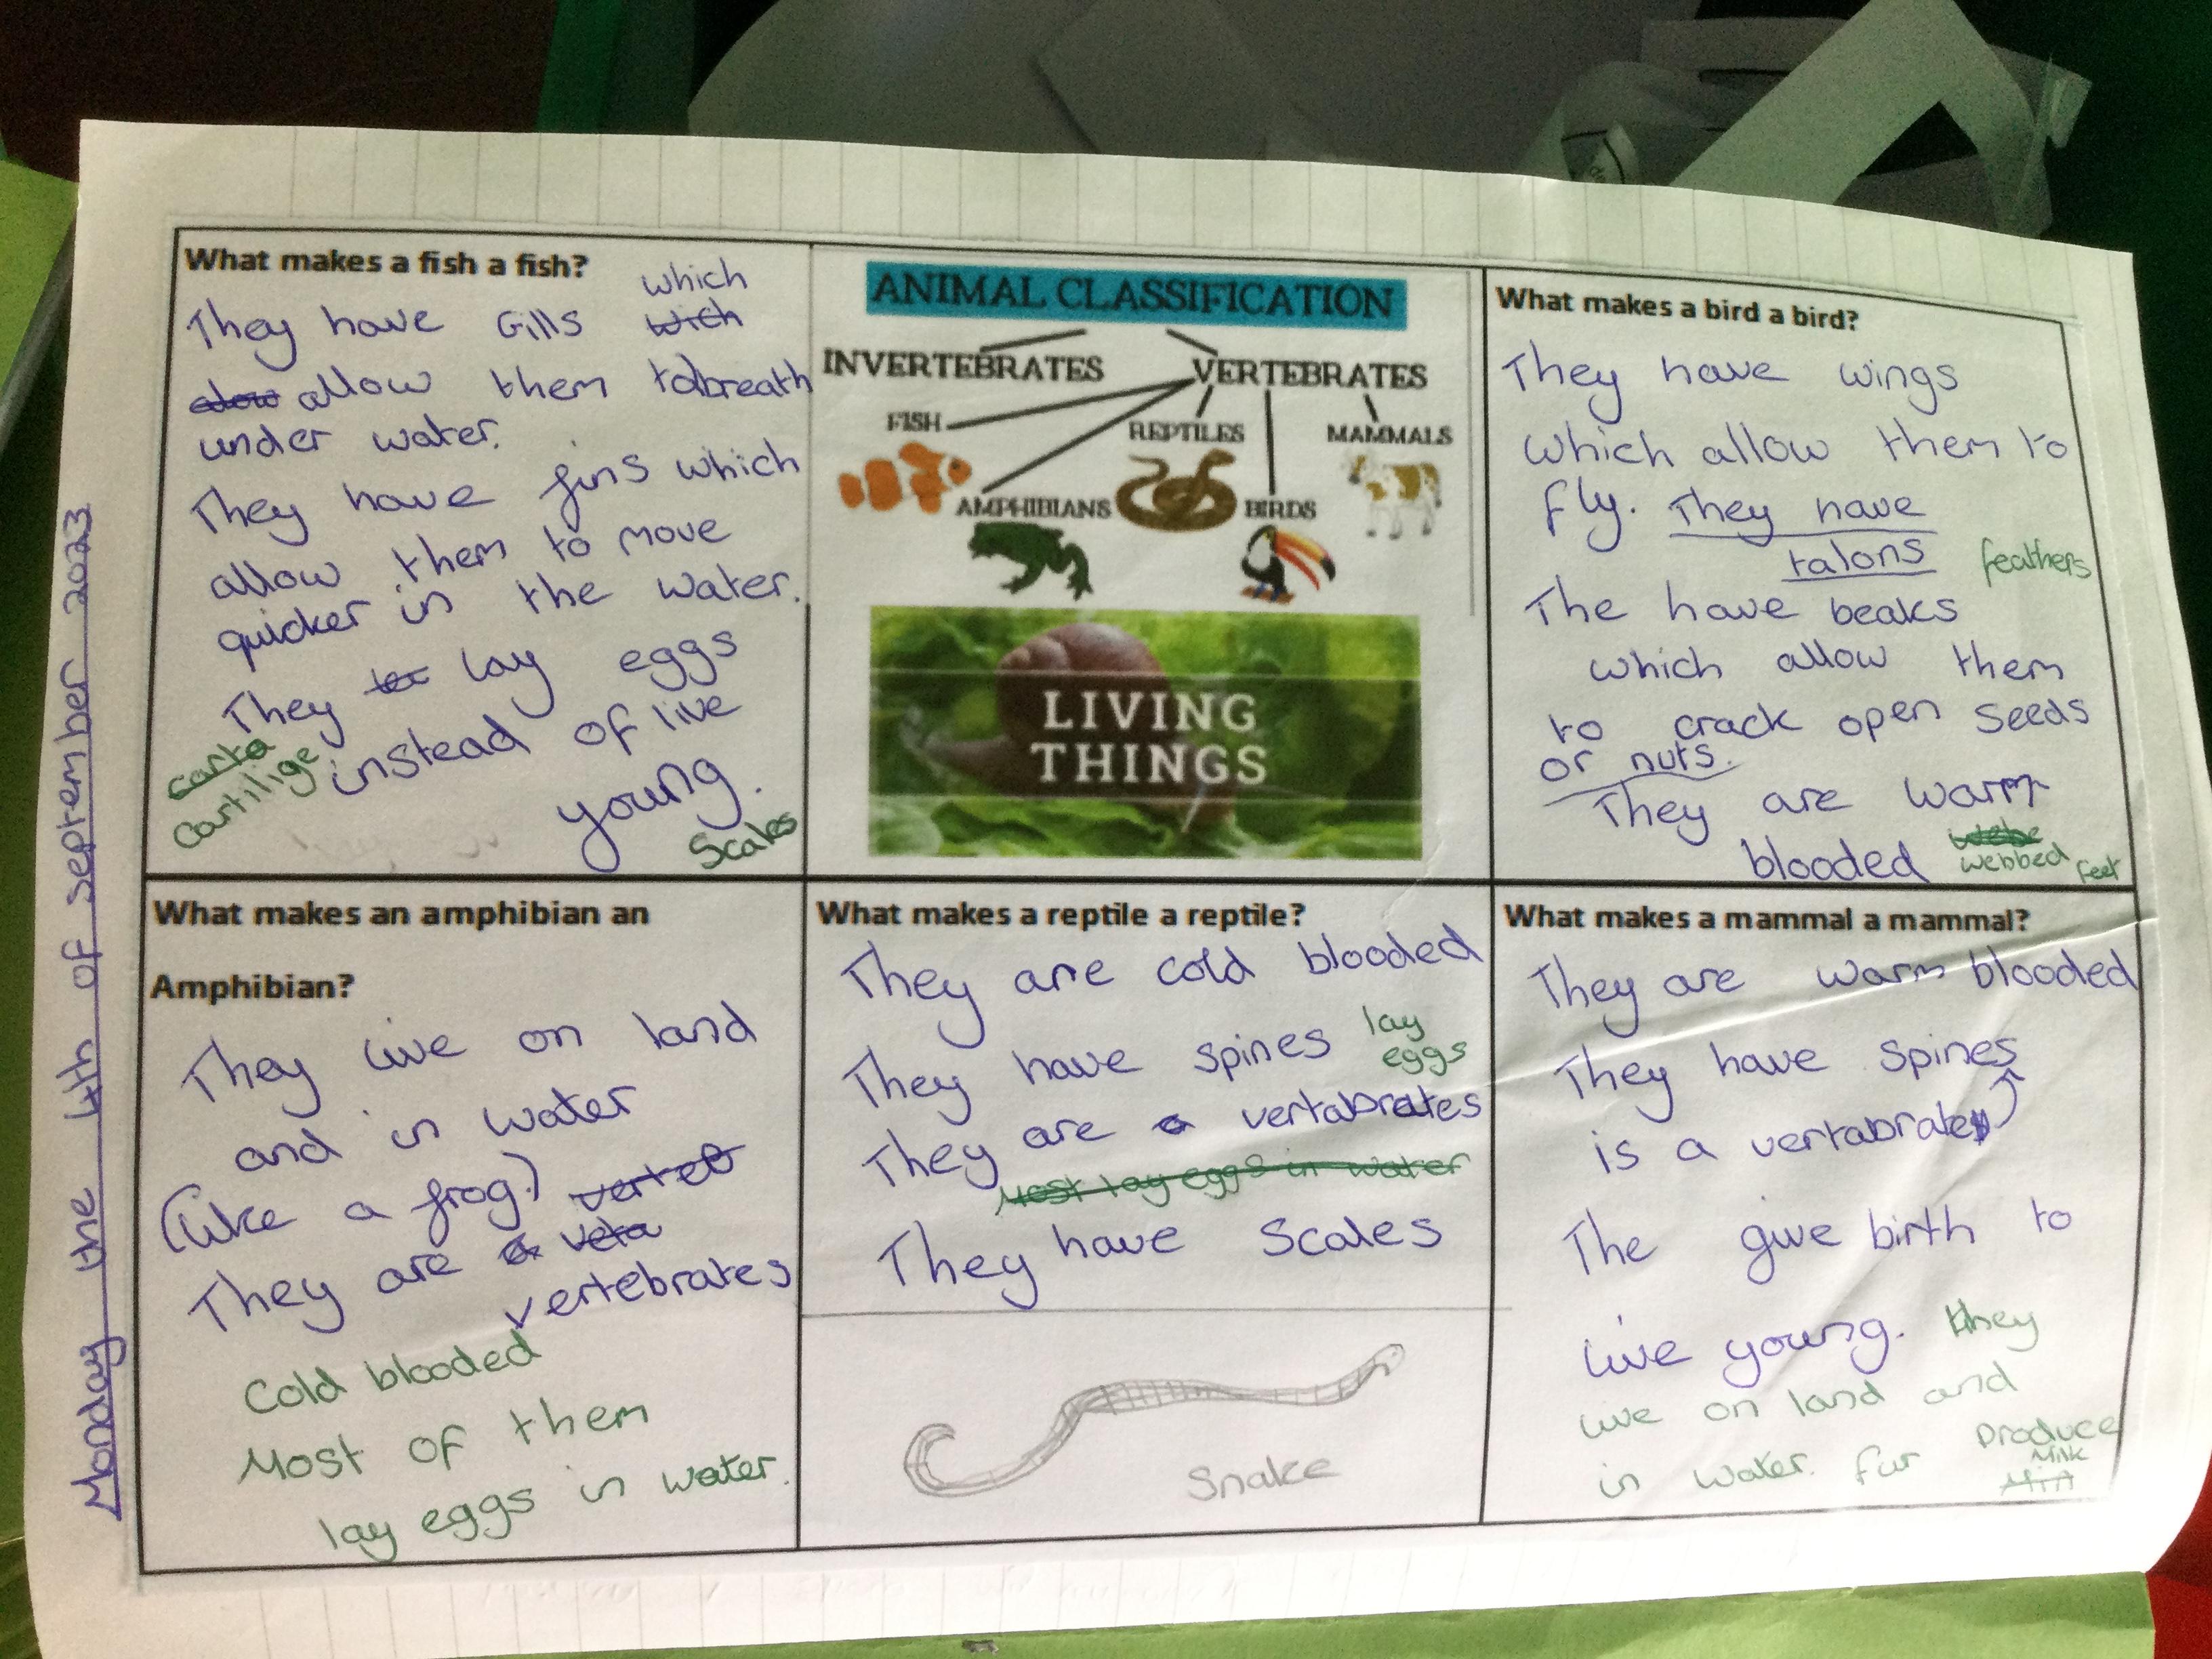 Monday the 4th of September 2023
What makes a fish a fish?
which
They have Gills wich
alow allow them to breath
under water.
They have fins which
allow them to move
quicker in the water.
They lay eggs
instead of live
young.
carta
Cartilige
Scales
ANIMAL CLASSIFICATION
INVERTEBRATES VERTEBRATES
FISH REPTILES MAMMALS
AMPHIBIANS BIRDS
LIVING
THINGS
What makes a bird a bird?
They have wings
which allow them to
fly. They have
talons feathers
The have beaks
which allow them
to crack open seeds
or nuts.
They are warm
blooded webbed feet
What makes an amphibian an
Amphibian?
They live on land
and in water
(like a frog.) verteb
They are a veta
vertebrates
Cold blooded
Most of them
lay eggs in water.
What makes a reptile a reptile?
They are cold blooded
They have spines lay
eggs
They are a vertabrates
Most lay eggs in water
They have Scales
Snake
What makes a mammal a mammal?
They are warm blooded
They have spines
is a vertabrate
The give birth to
live young. they
live on land and
in water. fur Produce
Milk